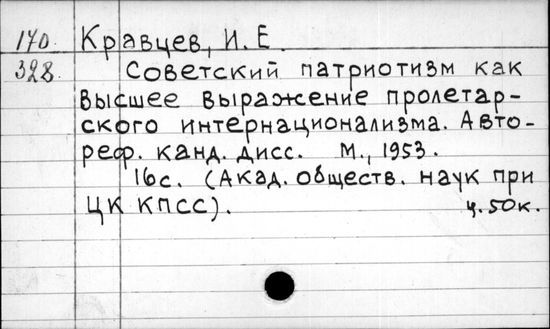 170. Кравцев, И. Е.
328. Советский патриотизм как
высшее выражение пролетар-
ского интернационализма. Авто-
реф. канд. дисс. М., 1953.
16с. (Акад. обществ. наук при
ЦК КПСС). ц. 50к.